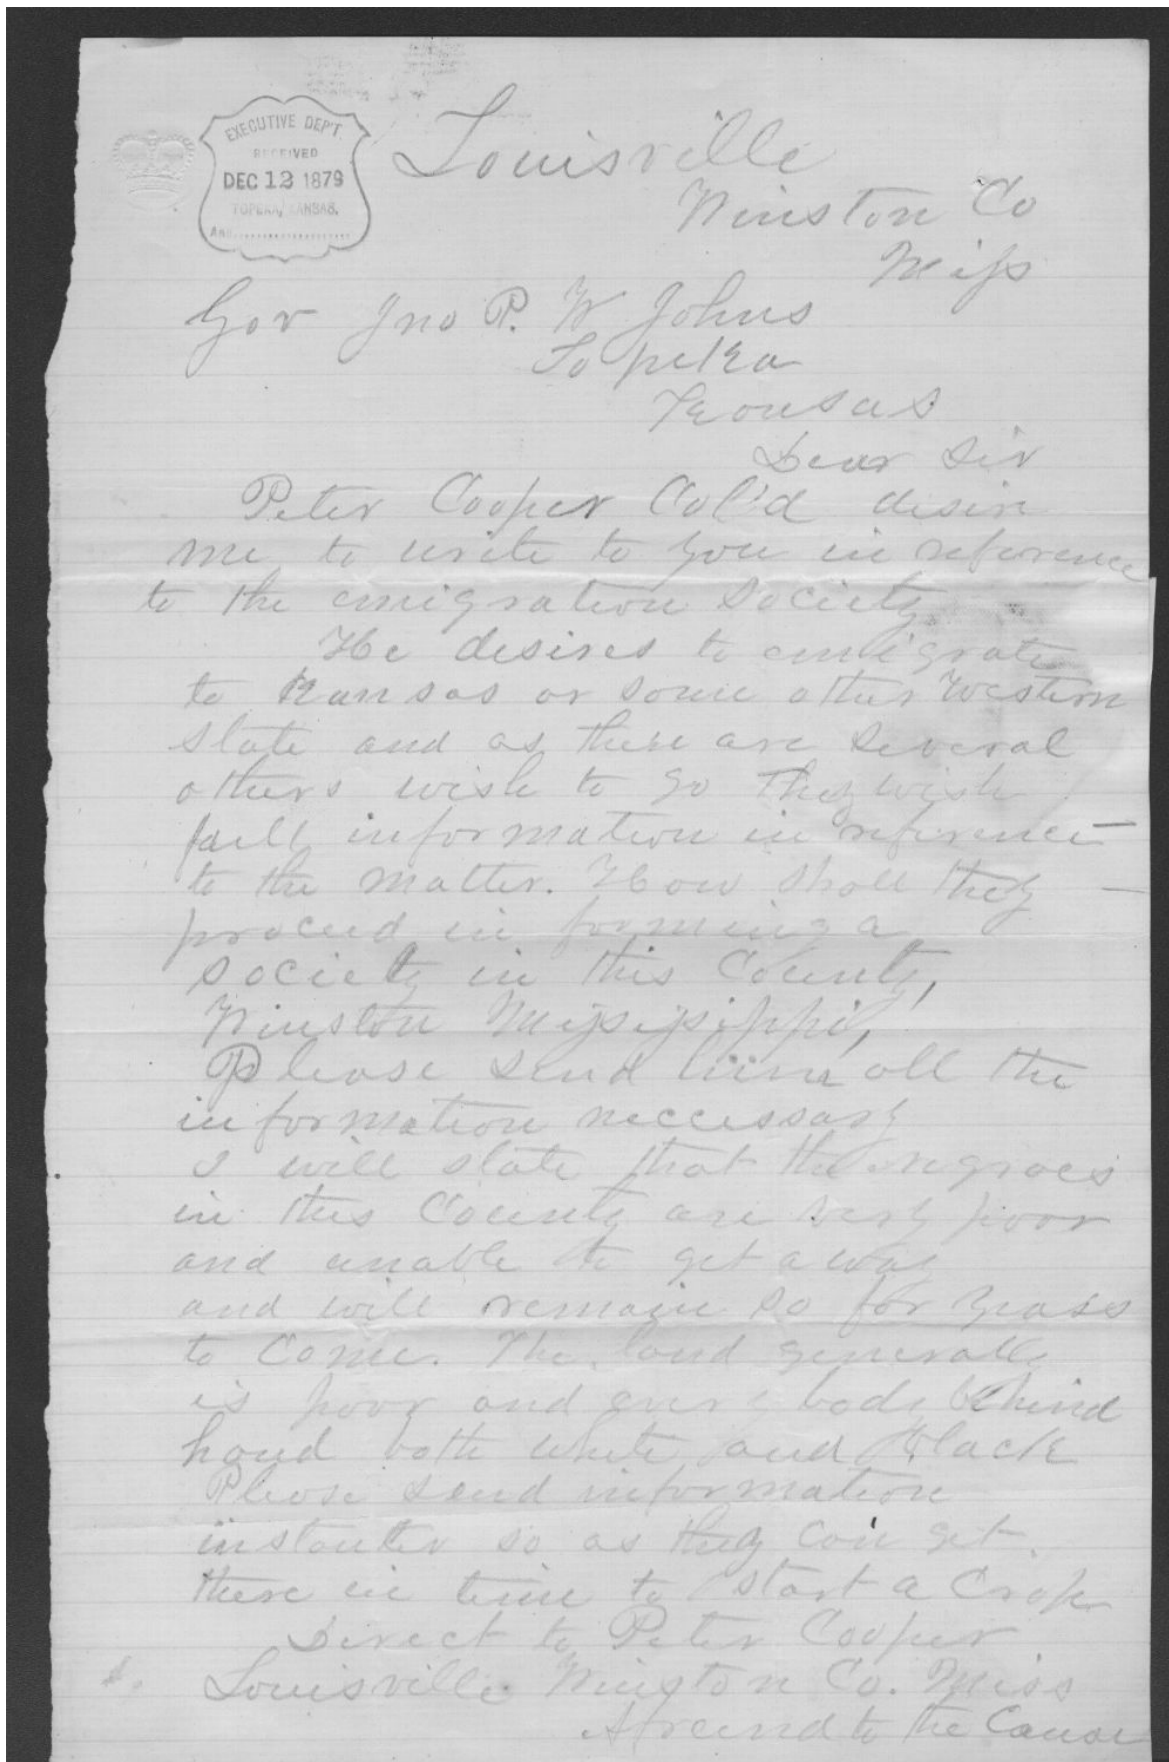 EXECUTIVE DEP'T.
RECEIVED
DEC 12 1879
TOPEKA, KANSAS.
Ans.....................
Louisville
Winston Co
Miss
Gov Jno P. W Johns
Topeka
Kansas
Dear Sir
Peter Cooper Col'd desire
me to write to you in reference
to the emigration Society
He desires to emigrate
to Kansas or some other Western
state and as there are several
others wish to go they wish
full information in reference
to the matter. How shall they
proceed in forming a
society in this County,
Winston Missisippi,
Please send him all the
information neccessary
I will state that the negroes
in this County are very poor
and unable to get away
and will remain so for years
to come. The land generally
is poor and every body behind
hand both white and black
Please send information
instanter so as they can get
there in time to start a crop
Direct to Peter Cooper
Louisville Winston Co. Miss
A freind to the Cause